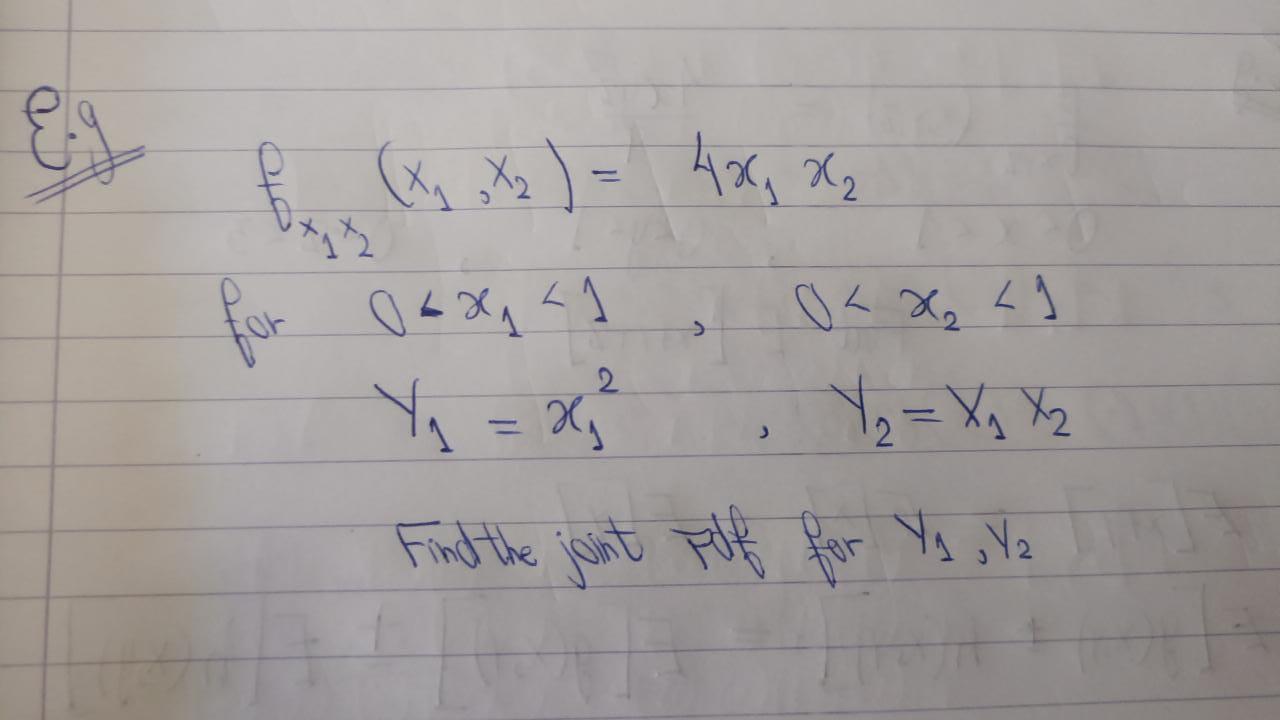 E.g
f_{X_1 X_2} (X_1, X_2) = 4x_1 x_2
for 0 < x_1 < 1 , 0 < x_2 < 1
Y_1 = x_1^2 , Y_2 = X_1 X_2
Find the joint Pdf for Y_1, Y_2